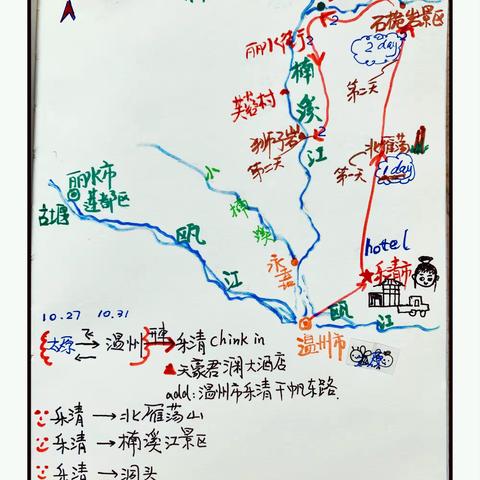 石桅岩景区
丽水街
2
2 day
楠
第二天
芙蓉村
溪
北雁荡
狮子岩
2
江
第二天
第一天
1 day
小
丽水市
莲都区
楠
古堰
溪
hotel
瓯
永嘉
乐清市
江
瓯
江
温州市
太原
10.27 10.31
太原 飞 温州 乐清 chink in
天豪君澜大酒店
add: 温州市乐清千帆东路.
乐清 → 北雁荡山
乐清 → 楠溪江景区
乐清 → 洞头